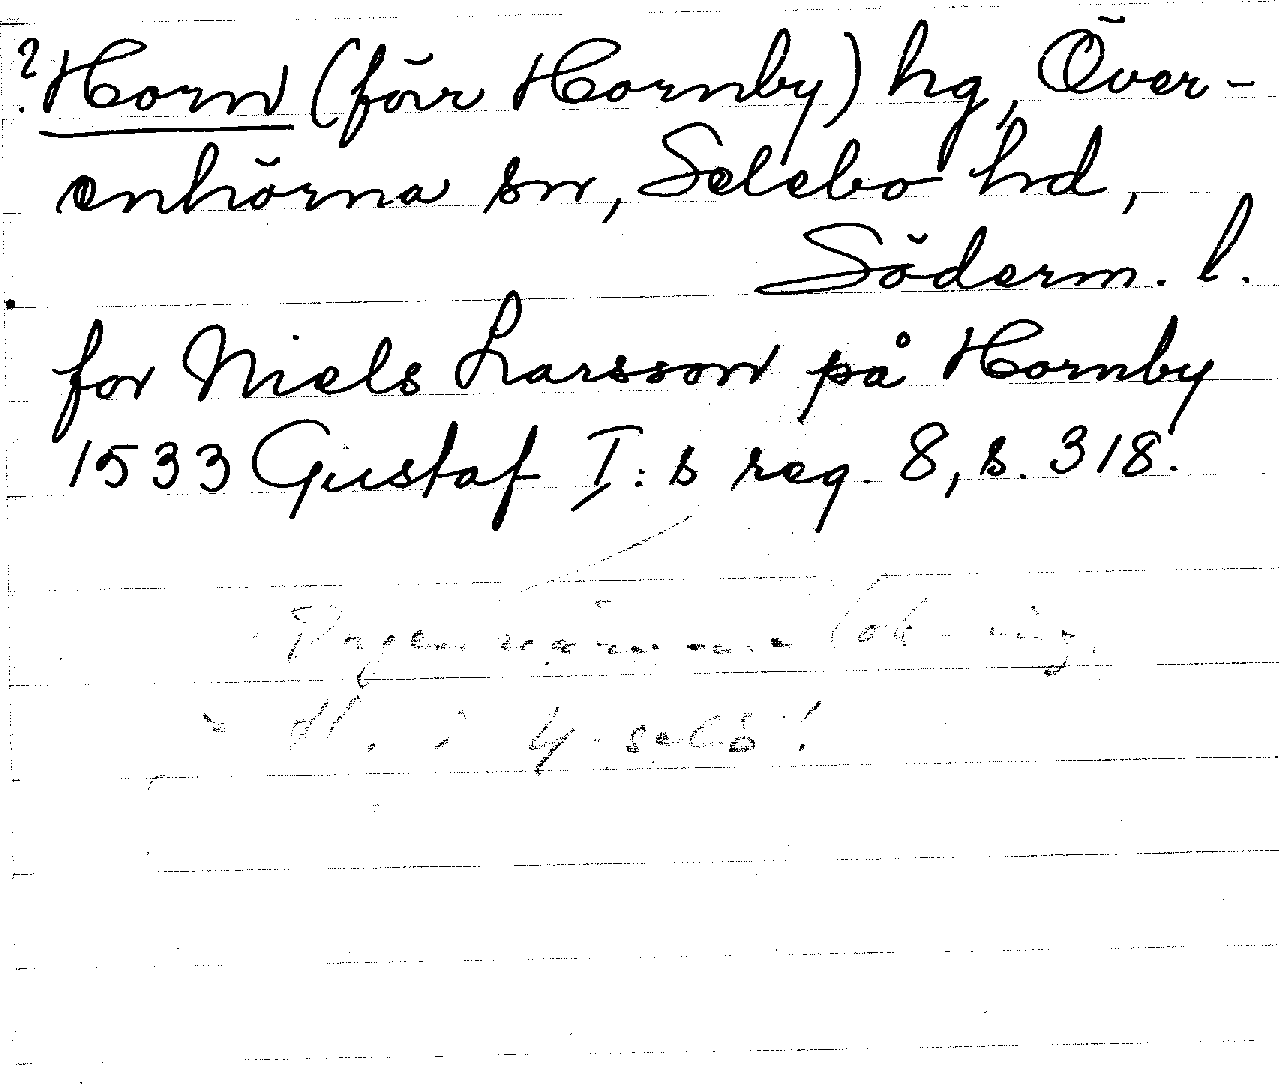 ? Horn (förr Hornby) hg, Över-
enhörna sn, Selebo hd,
Söderm. l.
for Niels Larsson på Hornby
1533 Gustaf I:s reg. 8, s. 318.
H. i